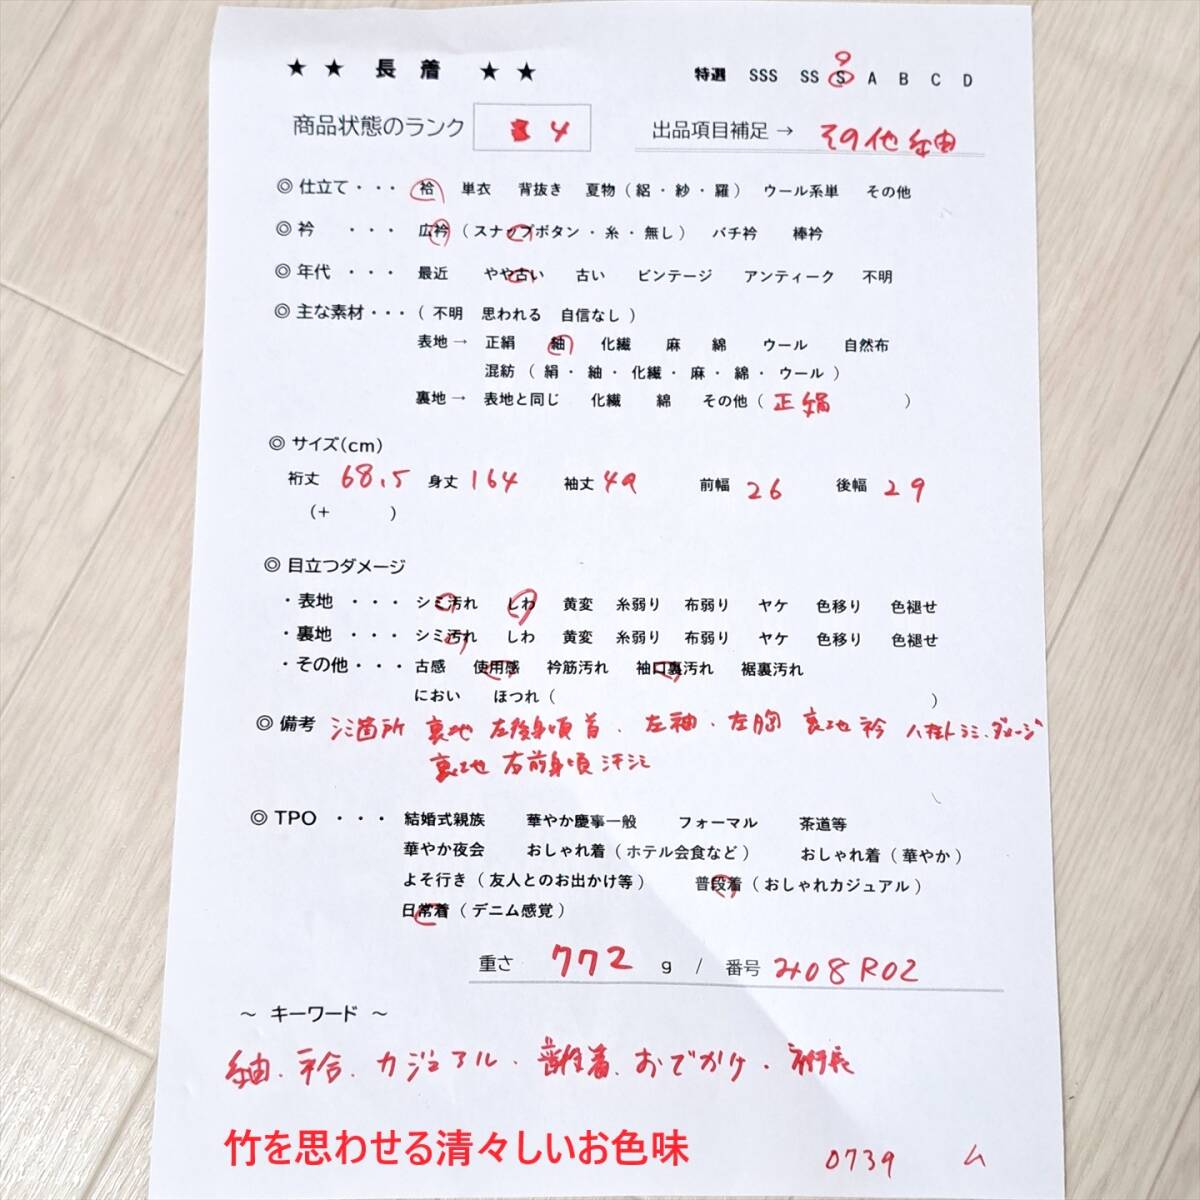 ★ ★ 長 着 ★ ★
特選 SSS SS S A B C D
商品状態のランク 4
出品項目補足 → その他紬
◎ 仕立て・・・ 袷 単衣 背抜き 夏物（絽・紗・羅） ウール系単 その他
◎ 衿 ・・・ 広衿（スナップボタン・糸・無し） バチ衿 棒衿
◎ 年代 ・・・ 最近 やや古い 古い ビンテージ アンティーク 不明
◎ 主な素材・・・（ 不明 思われる 自信なし ）
表地 → 正絹 紬 化繊 麻 綿 ウール 自然布
混紡 （ 絹・ 紬・ 化繊・ 麻・ 綿・ ウール ）
裏地 → 表地と同じ 化繊 綿 その他（ 正絹 ）
◎ サイズ(cm)
裄丈 68.5 身丈 164 袖丈 49 前幅 26 後幅 29
（+ ）
◎ 目立つダメージ
・表地 ・・・ シミ汚れ しわ 黄変 糸弱り 布弱り ヤケ 色移り 色褪せ
・裏地 ・・・ シミ汚れ しわ 黄変 糸弱り 布弱り ヤケ 色移り 色褪せ
・その他・・・ 古感 使用感 衿筋汚れ 袖口裏汚れ 裾裏汚れ
におい ほつれ（ ）
◎ 備考 シミ箇所 裏地 左後身頃首、左袖、左胸 裏地 衿 八掛トシミ、ダメージ
裏地 右前身頃 汗シミ
◎ TPO ・・・ 結婚式親族 華やか慶事一般 フォーマル 茶道等
華やか夜会 おしゃれ着（ホテル会食など） おしゃれ着（華やか）
よそ行き（友人とのお出かけ等） 普段着（おしゃれカジュアル）
日常着（デニム感覚）
重さ 772 g / 番号 み08R02
～ キーワード ～
紬、袷、カジュアル、普段着、おでかけ、裄長
竹を思わせる清々しいお色味
0739 ム